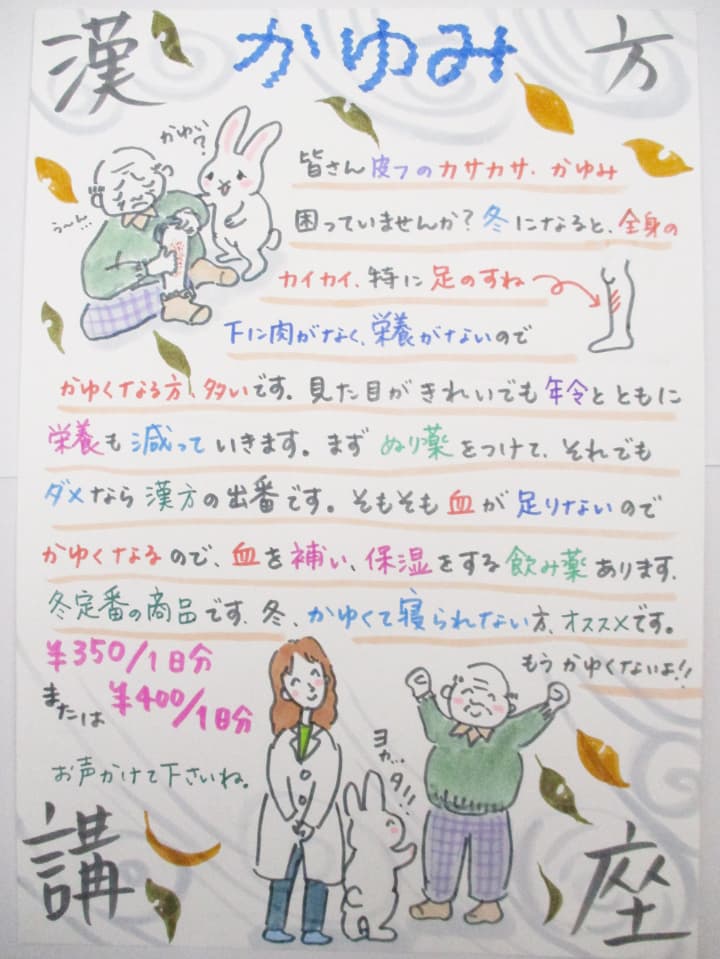 漢方
かゆみ
かゆい?
う〜ん…
皆さん皮フのカサカサ・かゆみ
困っていませんか?冬になると、全身の
カイカイ、特に足のすね
下に肉がなく、栄養がないので
かゆくなる方、多いです。見た目がきれいでも年令とともに
栄養も減っていきます。まずぬり薬をつけて、それでも
ダメなら漢方の出番です。そもそも血が足りないので
かゆくなるので、血を補い、保湿をする飲み薬あります。
冬定番の商品です。冬、かゆくて寝られない方、オススメです。
¥350/1日分
または ¥400/1日分
もうかゆくないよ!!
ヨカッタ!!
お声かけて下さいね。
講座